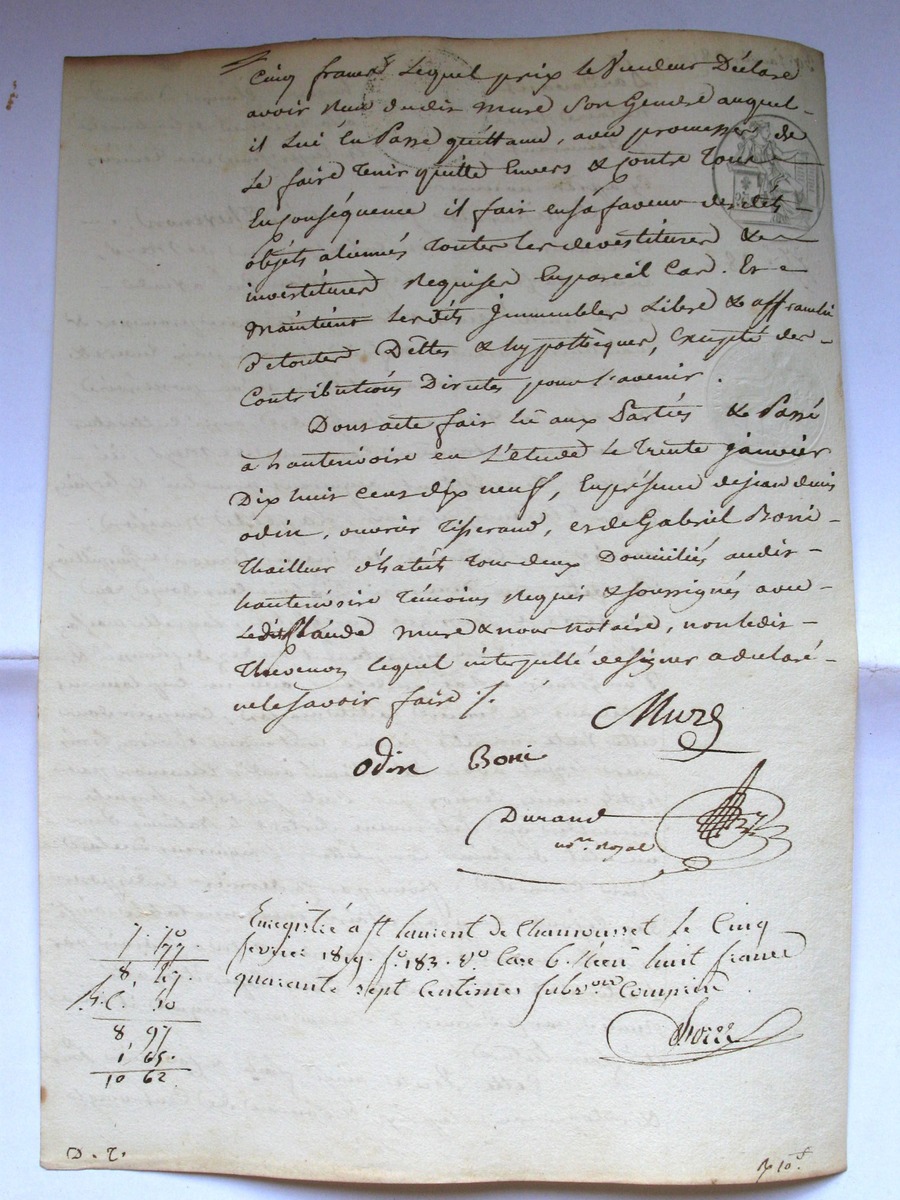 Cinq francs Lequel prix le Vendeur Déclare
avoir Reçu dudit mure Son Gendre auquel
il Lui En Passe quittance, avec promesse de
Le faire Tenir quitte Envers & Contre Tous
En conséquence il fait en sa faveur desdits
objets aliennés Toutes les devestitures &
investitures Requises En pareil Cas. Et
Maintient Lesdits Jmmeubles Libre & affranchi
De toutes Dettes & hypothèques, Excepté des
Contributions Directes pour l'avenir.
Dont acte fait lû aux Parties & Passé
à hauterivoire en L'étude Le Trente janvier
Dix huit Cent dix neuf, En présence de jean denis
odin, ouvrier Tisserand, et de Gabriel Boni
Thailleur d'habits Tous deux Domiciliés audit
hauterivoire Témoins Requis & soussignés avec
Ledit Claude mure & nous notaire, non ledit
Thevenon lequel interpellé de signer a déclaré
ne le savoir faire ./.
Mure
odin Boni
Durand
no.re Royal
Enregistré à St laurent de Chamousset le Cinq
fevrier 1819. f.o 183. V.o Case 6. Reçu huit francs
quarante sept Centimes subv.on Comprise
7. 70
77
8. 47.
30
8 97
1 65.
10 62
D. T.
10.